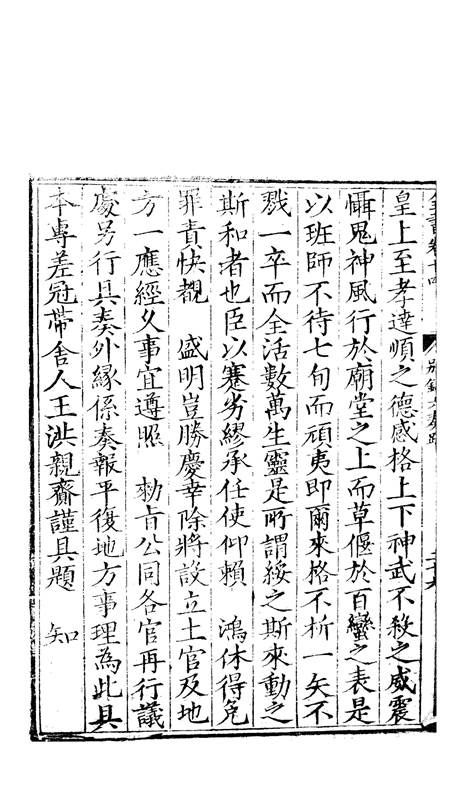 全書卷十四 別錄六奏疏 二十九
皇上至孝達順之德感格上下神武不殺之威震
懾鬼神風行於廟堂之上而草偃於百蠻之表是
以班師不待七旬而頑夷即爾來格不折一矢不
戮一卒而全活數萬生靈是所謂綏之斯來動之
斯和者也臣以蹇劣繆承任使仰賴 鴻休得免
罪責快覩 盛明豈勝慶幸除將設立土官及地
方一應經久事宜遵照 勅旨公同各官再行議
處另行具奏外緣係奏報平復地方事理為此具
本專差冠帶舍人王洪親齎謹具題 知